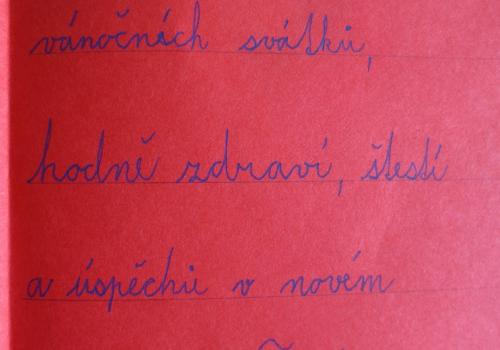 vánočních svátků,
hodně zdraví, štestí
a úspěchů v novém